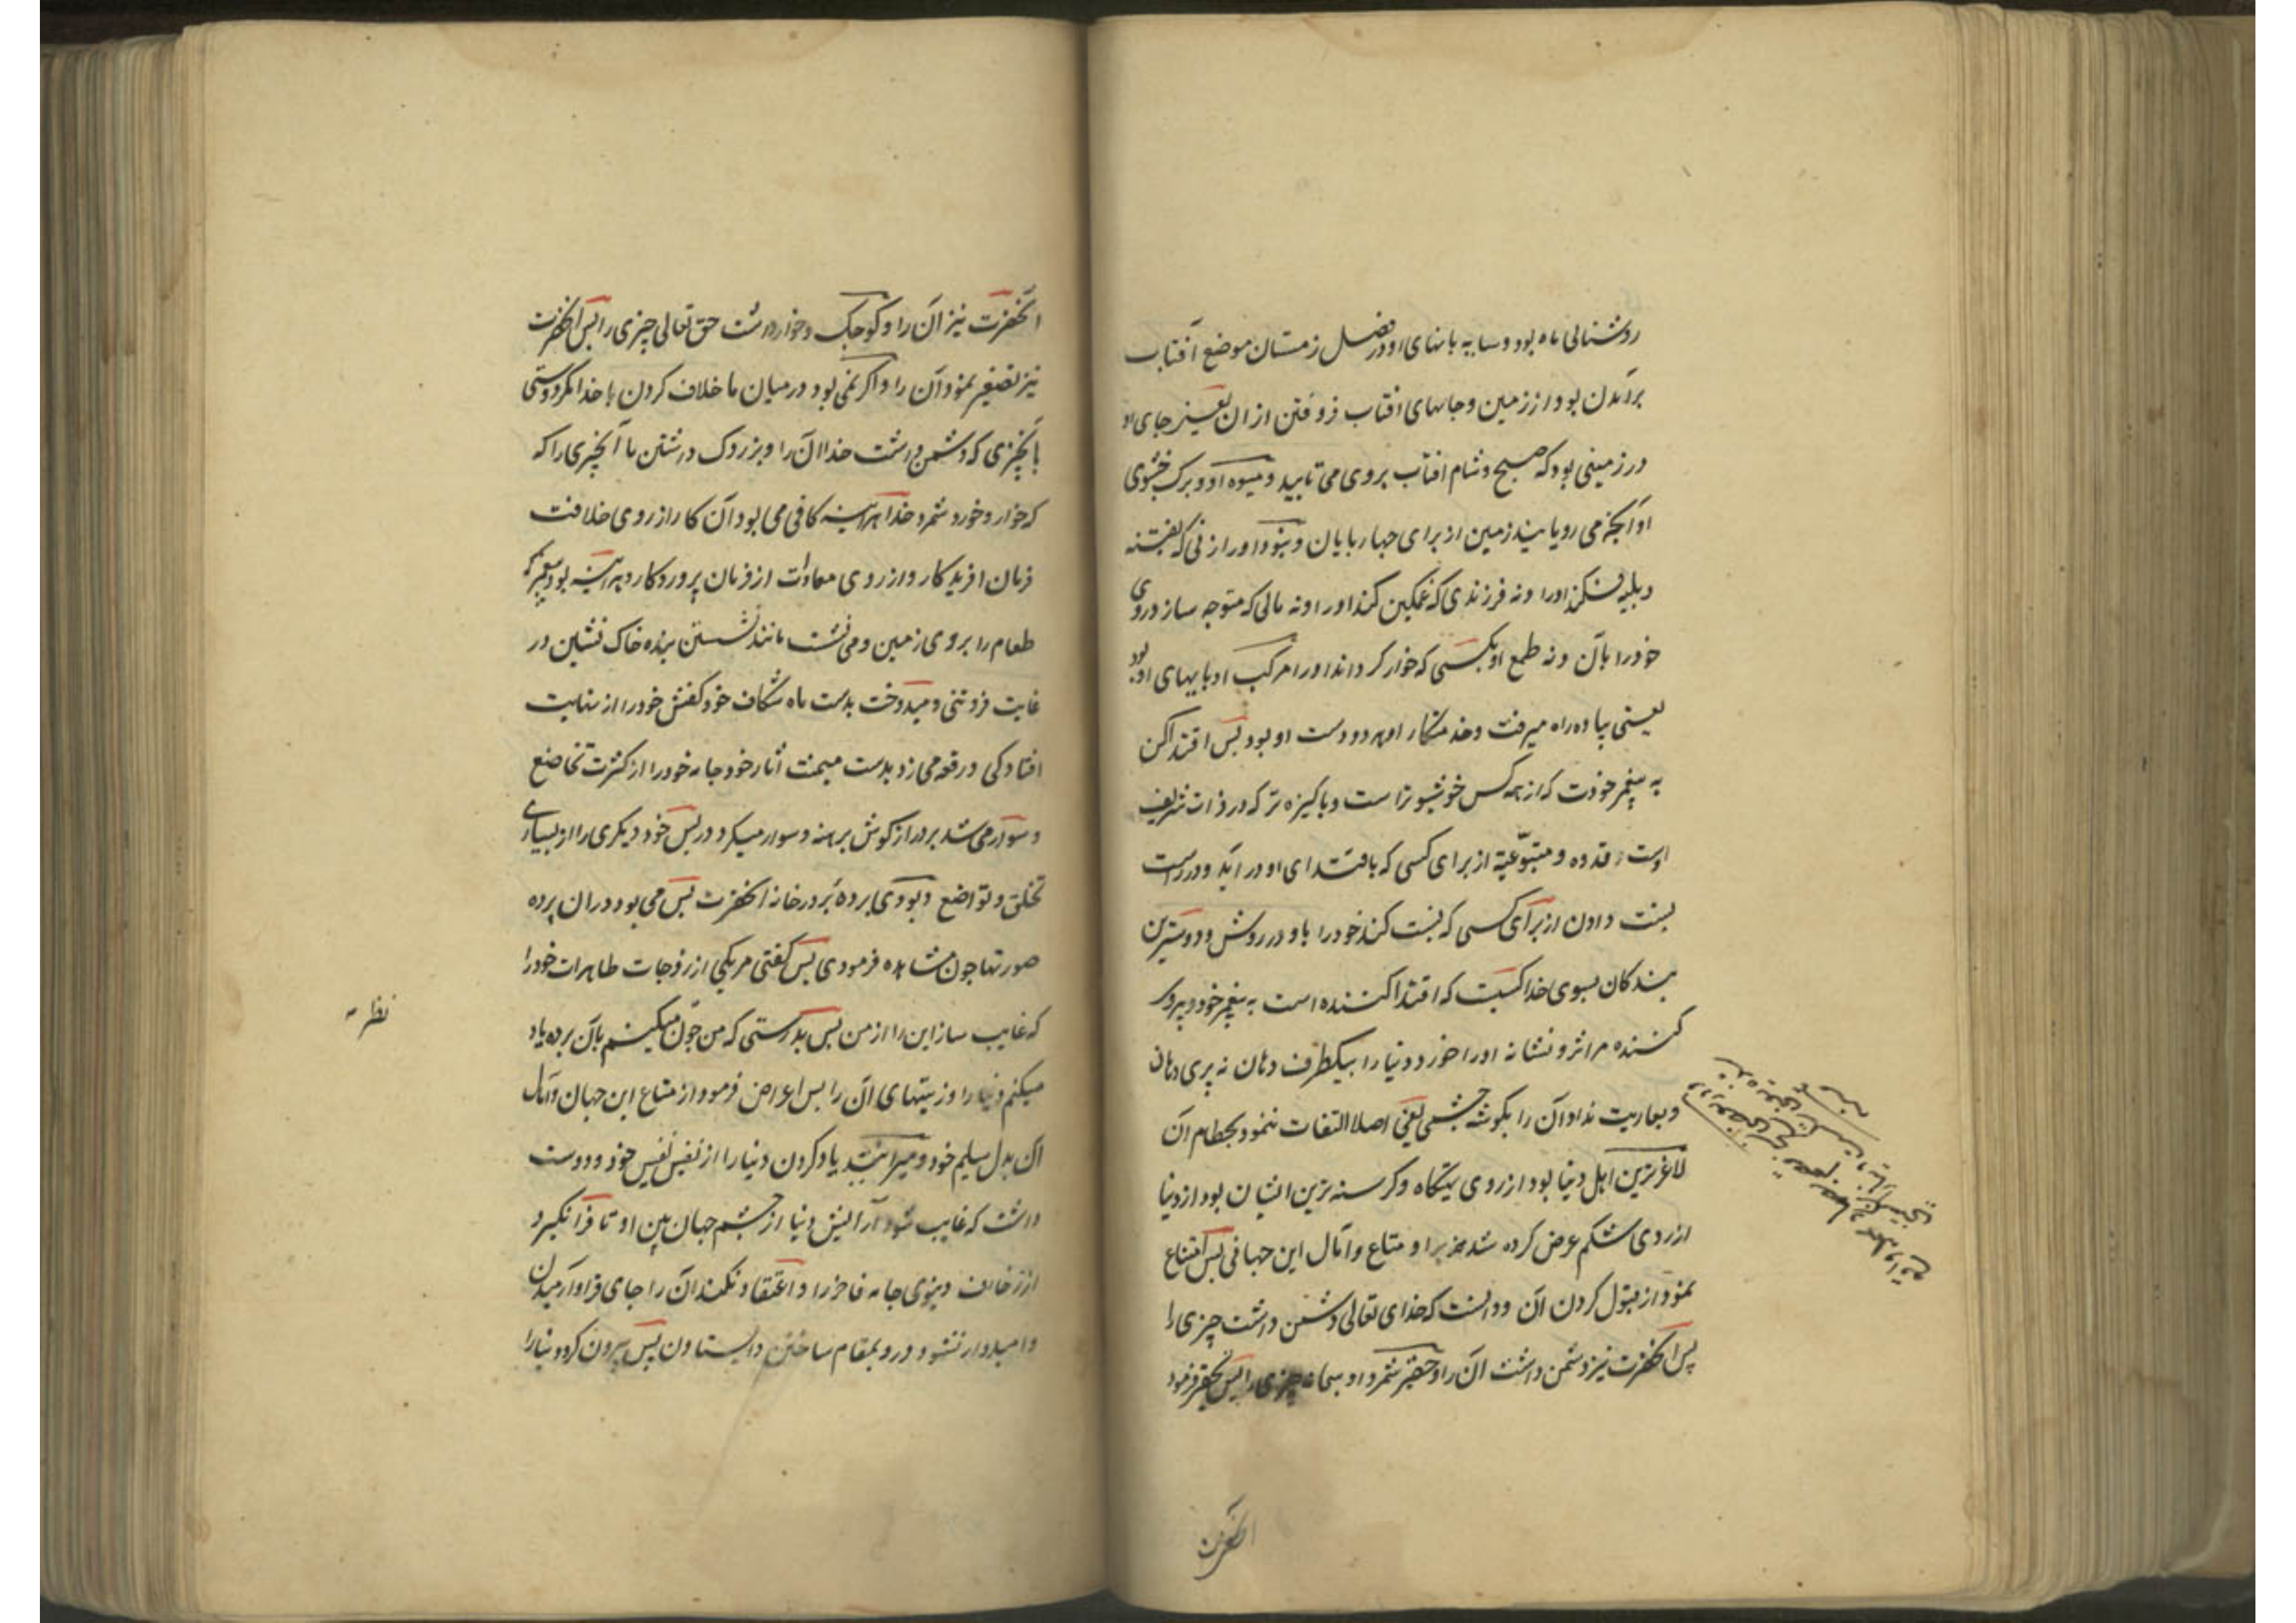 روشنائی ماه بود و سایه بانهای او در فصل زمستان موضع آفتاب
برآمدن بود از زمین و جاهای افتاب فرو فتن از ان یعنی جای او
در زمینی بود که صبح و شام افتاب بر وی می تابید و میوه او و برک خشبوی
او آنچه می رویاند زمین از برای چهارپایان و نبود او را زنی که بفتنه
و بلیه فکند او را و نه فرزندی که غمکین کند او را و نه مالی که متوجه سازد روی
خود را بآن و نه طمع او بکسی که خوار کرداند او را مرکب او پایهای او بود
یعنی پیاده راه میرفت و خدمتکار او هر دو دست او بود پس اقتدا کن
به پیغمبر خودت که از همه کس خوشبو تر است و پاکیزه تر که در ذات شریف
اوست قدوه و متبوعیة از برای کسی که باقتدای او در آید و در اوست
نسبت دادن از برای کسی که نسبت کند خود را باو در روش و دوسترین
بندکان بسوی خدا کسیست که اقتدا کننده است به پیغمبر خود و پیروی
کننده مر اثر و نشانه او را خورد دنیا را بیکطرف دهان نه پری دهان
و بعاریت نداد آن را بکوشه چشمی یعنی اصلا التفات ننمود بحطام آن
لاغرترین اهل دنیا بود از روی تهیکاه و کرسنه ترین ایشان بود از دنیا
از روی شکم عرض کرده شد بر او متاع و آمال این جهانی پس امتناع
نمود از قبول کردن آن و دانست که خدای تعالی دشمن داشت چیزی را
پس آنحضرت نیز دشمن داشت آن را و حقیر شمرد او سبحانه چیزی را پس تحقیر فرمود
آنحضرت
آنحضرت نیز آن را و کوچک و خوار داشت حق تعالی چیزی را پس آنحضرت
نیز تصغیر نمود آن را و اکر نمی بود در میان ما خلاف کردن با خدا مکر دوستی
با آنچیزی که دشمن داشت خدا آن را و بزرک داشتن ما آنچیزی را که
که خوار و خورد شمرد خدا هراینه کافی می بود آن کار از روی خلافت
فرمان افریدکار و از روی معادات از فرمان پروردکار و بهراینه بود پیغمبر که
طعام را بر روی زمین و می نشست مانند نشستن بنده خاک نشین در
غایت فروتنی و میدوخت بدست ماه شکاف خود کفش خود را از نهایت
افتادکی و رقعه می زد بدست میمنت آثار خود جامه خود را از کثرت تخاضع
و سوار می شد بر دراز کوش برهنه و سوار میکرد در پس خود دیکری را از بسیاری
تخلق و تواضع و بودی پردهٔ بر در خانه آنحضرت پس می بود در ان پرده
صورتها چون مشاهده فرمودی پس کفتی مر یکی از زوجات طاهرات خود را
که غایب ساز این را از من پس بدرستی که من چون میکنم بآن پرده یاد
نظر
میکنم دنیا را و زینتهای آن را پس اعراض فرمود از متاع این جهان و آمال
آن بدل سلیم خود و میرانید یاد کردن دنیا را از نفس نفیس خود و دوست
داشت که غایب شود آرایش دنیا از چشم جهان بین او تا فرا نکیرد
از زخارف دنیوی جامه فاخر را و اعتقاد نکند آن را جای قرار و آرمیدن
و امیدوار نشود درو بمقام ساختن و ایستادن پس بیرون کرد دنیا را